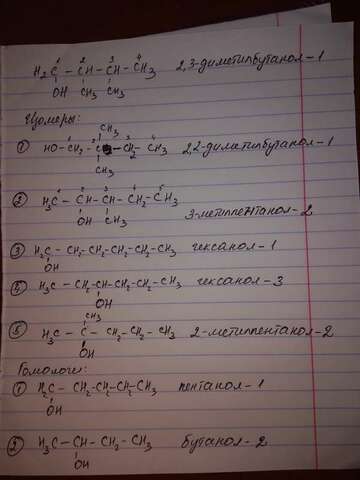 1 2 3 4
H₂C – CH – CH – CH₃ 2,3-диметилбутанол-1
OH CH₃ CH₃
Изомеры:
CH₃
① HO-CH₂ - C - CH₂ - CH₃ 2,2-диметилбутанол-1
CH₃
1 2 3 4 5
② H₃C – CH-CH-CH₂-CH₃
OH CH₃ 3-метилпентанол-2
③ H₂C – CH₂-CH₂-CH₂-CH₂-CH₃ гексанол-1
OH
④ H₃C – CH₂-CH-CH₂-CH₂-CH₃ гексанол-3
OH
CH₃
⑤ H₃C – C – CH₂-CH₂-CH₃ 2-метилпентанол-2
OH
Гомологи:
① H₂C – CH₂-CH₂-CH₂-CH₃ пентанол-1
OH
② H₃C – CH – CH₂ – CH₃ бутанол-2
OH